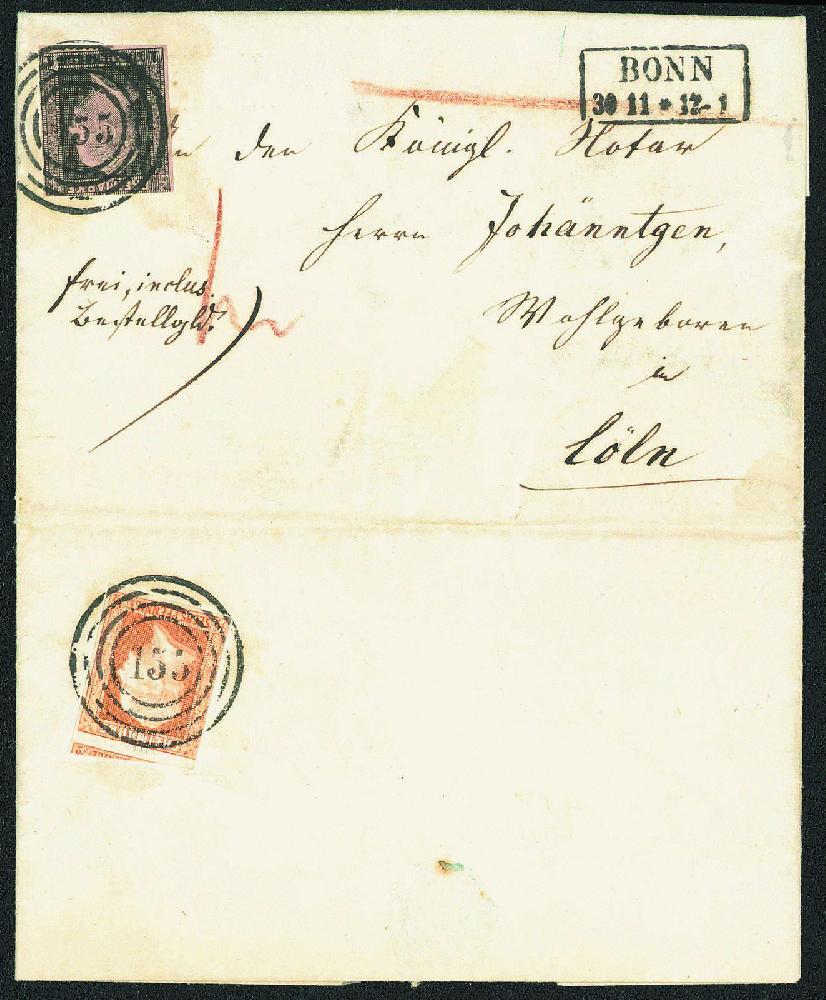 BONN
30 11 * 12-1
155
An den Königl. Notar
Herrn Johänntgen,
frei, inclus.
Bestellgld.
Wohlgeboren
in
Cöln
155